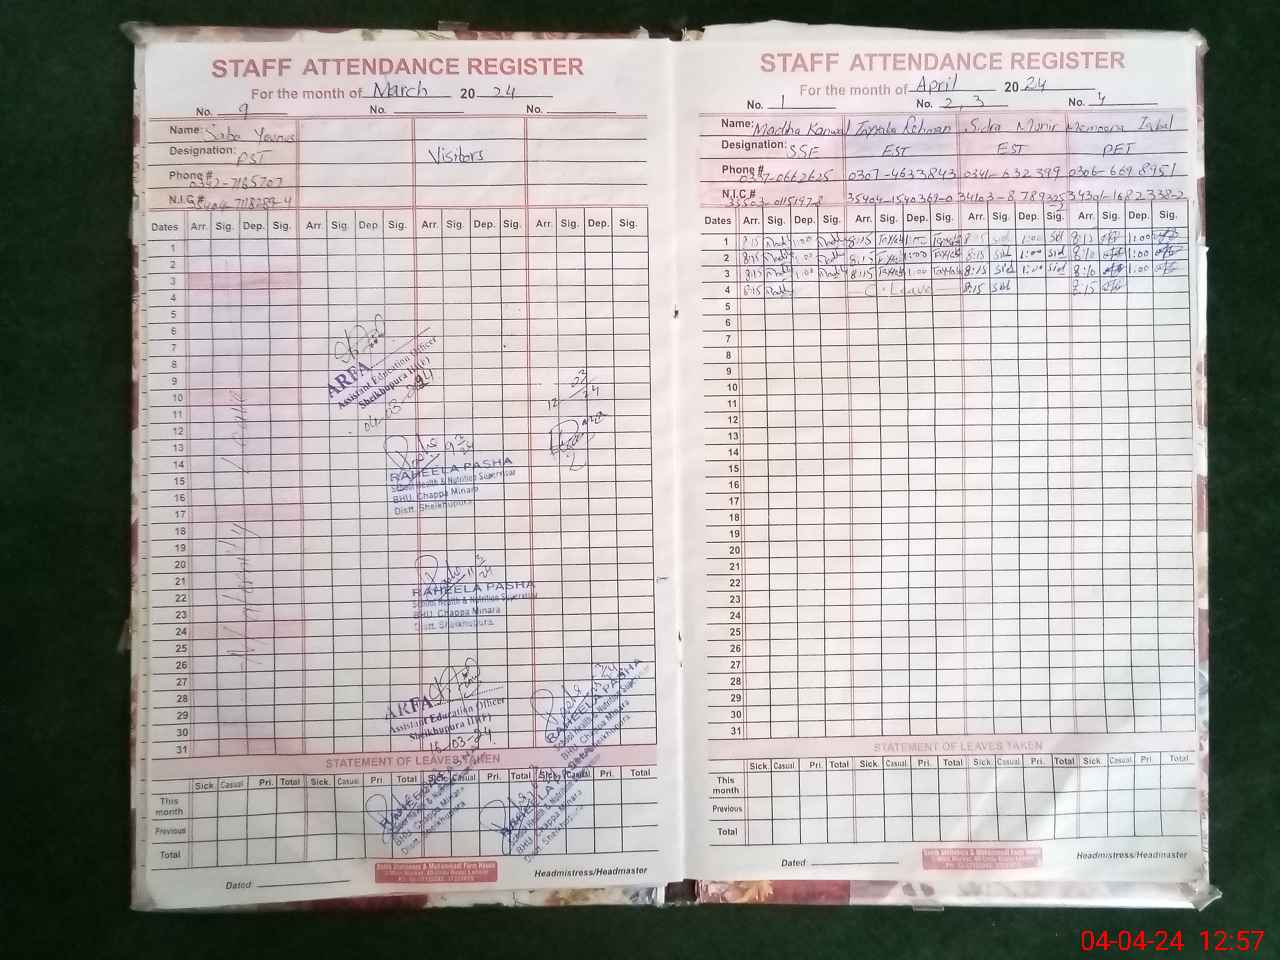 STAFF ATTENDANCE REGISTER
For the month of March 2024
No. 9 No. No.
Name: Saba Younus
Designation: PST Visitors
Phone# 0342-7165707
N.I.C# 35404-7118289-4
Dates Arr. Sig. Dep. Sig. Arr. Sig. Dep. Sig. Arr. Sig. Dep. Sig. Arr. Sig. Dep. Sig.
1
2
3
4
5
6
7
8
9
10
11
12
13
14
15
16
17
18
19
20
21
22
23
24
25
26
27
28
29
30
31
Maternity Leave
ARFA
Assistant Education Officer
Sheikhupura III(F)
04-03-2024
12 03/24
9 3/24
RAHEELA PASHA
School Health & Nutrition Supervisor
BHU. Chappa Minara
Distt. Sheikhupura
11 3/24
RAHEELA PASHA
School Health & Nutrition Supervisor
BHU. Chappa Minara
Distt. Sheikhupura
ARFA
Assistant Education Officer
Sheikhupura III(F)
16-03-24
RAHEELA PASHA
School Health & Nutrition Supervisor
BHU. Chappa Minara
Distt. Sheikhupura
STATEMENT OF LEAVES TAKEN
Sick. Casual Pri. Total Sick. Casual Pri. Total Sick. Casual Pri. Total Sick. Casual Total
This month
Previous
Total
Dated: Headmistress/Headmaster
STAFF ATTENDANCE REGISTER
For the month of April 2024
No. 1 No. 2, 3 No. 4
Name: Madiha Kanwal Tayyaba Rehman Sidra Munir Memoona Iqbal
Designation: SSE EST EST PET
Phone# 0337-0662625 0307-4633843 0341-632399 0306-6698951
N.I.C# 35503-0115197-8 35404-1540369-0 34103-8789325 34301-1682338-2
Dates Arr. Sig. Dep. Sig. Arr. Sig. Dep. Sig. Arr. Sig. Dep. Sig. Arr. Sig. Dep. Sig.
1 8:15 1:00 8:15 1:00 8:15 Sid 1:00 Sid 8:15 1:00
2 8:15 1:00 8:15 1:00 8:15 Sid 1:00 Sid 8:10 1:00
3 8:15 1:00 8:15 1:00 8:15 Sid 1:00 Sid 8:10 1:00
4 8:15 C. Leave 8:15 Sid 8:15
5
6
7
8
9
10
11
12
13
14
15
16
17
18
19
20
21
22
23
24
25
26
27
28
29
30
31
STATEMENT OF LEAVES TAKEN
Sick. Casual Pri. Total Sick. Casual Pri. Total Sick. Casual Pri. Total Sick. Casual Pri. Total
This month
Previous
Total
Dated: Headmistress/Headmaster
04-04-24 12:57